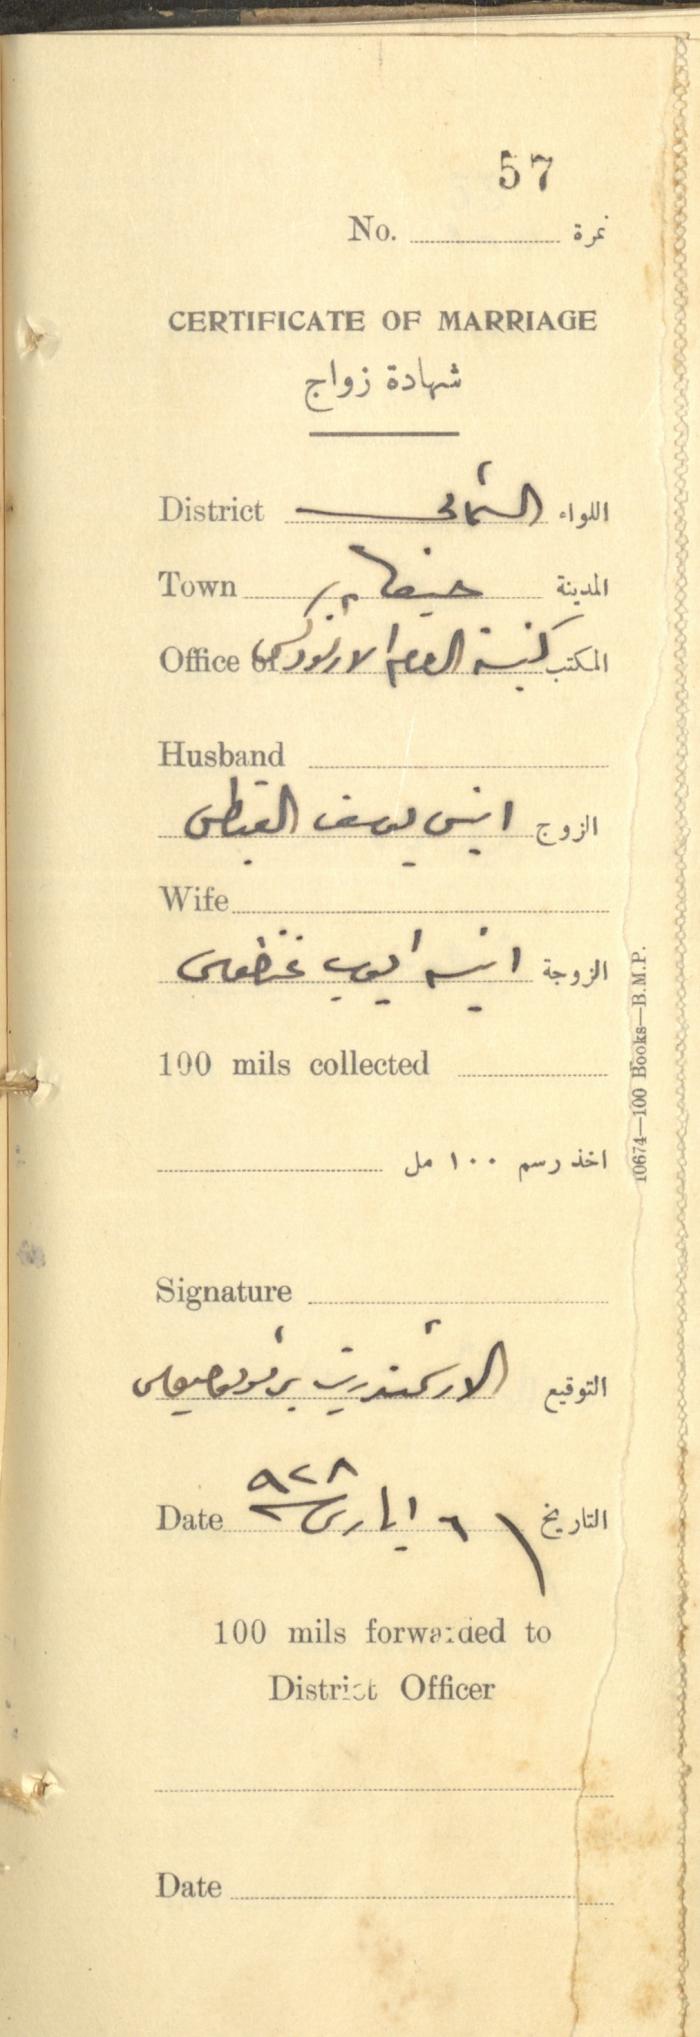 57
No. نمرة
CERTIFICATE OF MARRIAGE
شهادة زواج
District الشمالي اللواء
Town حيفا المدينة
Office of كنيسة الروم الارثوذكس المكتب
Husband
الزوج انيس يوسف القبطي
Wife
الزوجة انيسه ايوب
100 mils collected
اخذ رسم ١٠٠ مل
Signature
التوقيع الارشمندريت
Date التاريخ ٦ ايار سنة ٩٢٨
100 mils forwarded to
District Officer
Date
10674—100 Books—B.M.P.